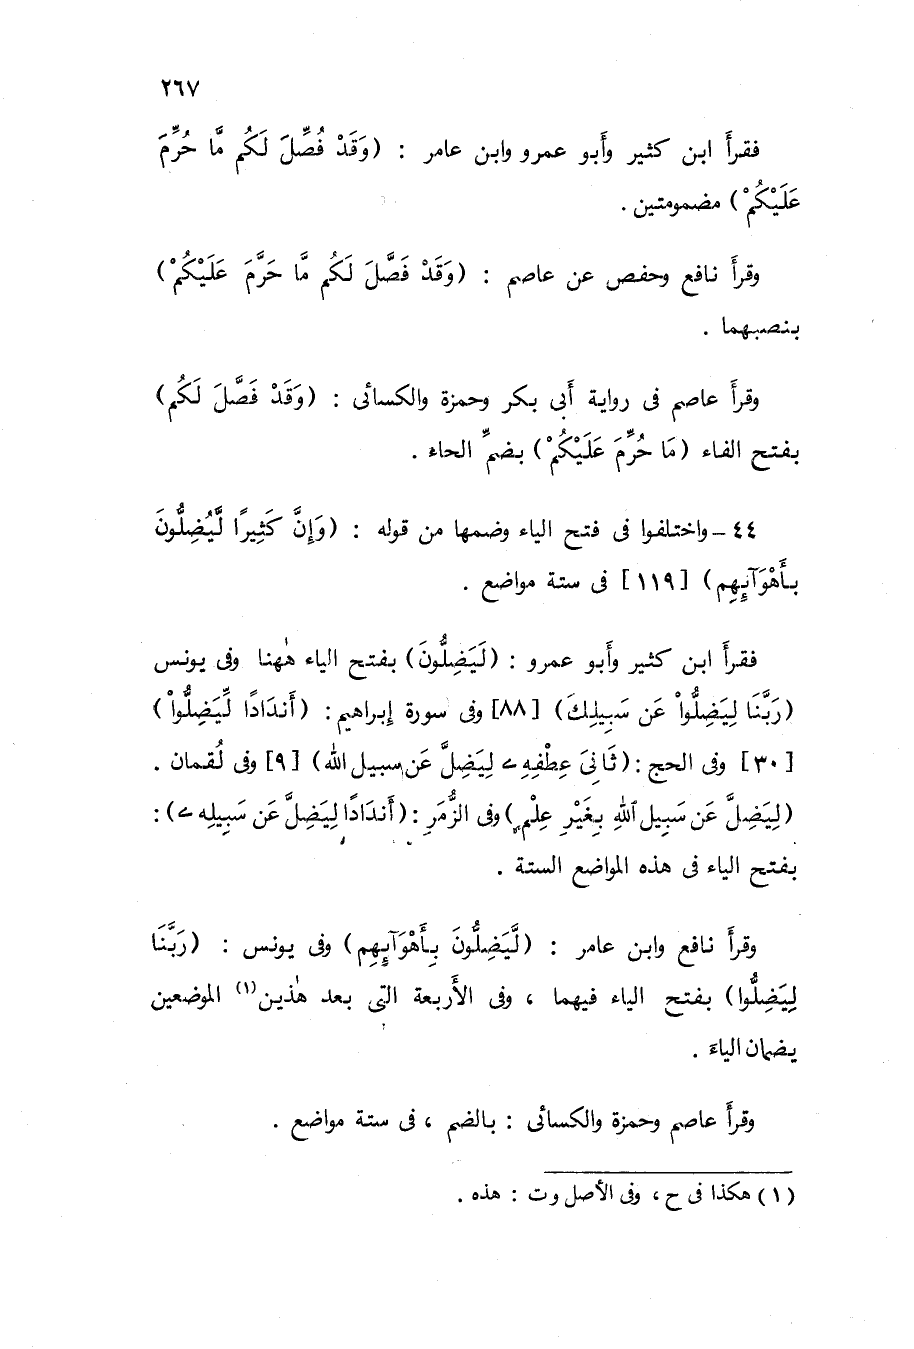 ٢٦٧
فقرأَ ابن كثير وأَبو عمرو وابن عامر : (وَقَدْ فُصِّلَ لَكُم مَّا حُرِّمَ
عَلَيْكُمْ) مضمومتين .
وقرأَ نافع وحفص عن عاصم : (وَقَدْ فَصَّلَ لَكُم مَّا حَرَّمَ عَلَيْكُمْ)
بنصبهما .
وقرأَ عاصم فى رواية أَبى بكر وحمزة والكسائى : (وَقَدْ فَصَّلَ لَكُم)
بفتح الفاء (مَا حُرِّمَ عَلَيْكُمْ) بضمِّ الحاء .
٤٤ – واختلفوا فى فتح الياء وضمها من قوله : (وَإِنَّ كَثِيرًا لَّيُضِلُّونَ
بِأَهْوَآئِهِم) [١١٩] فى ستة مواضع .
فقرأَ ابن كثير وأَبو عمرو : (لَيَضِلُّونَ) بفتح الياء هٰهنا وفى يونس
(رَبَّنَا لِيَضِلُّواْ عَن سَبِيلِكَ) [٨٨] وفى سورة إبراهيم : (أَندَادًا لِّيَضِلُّواْ)
[٣٠] وفى الحج : (ثَانِىَ عِطْفِهِۦ لِيَضِلَّ عَن سبيل الله) [٩] وفى لُقمان .
(لِيَضِلَّ عَن سَبِيلِ ٱللهِ بِغَيْرِ عِلْمٍ) وفى الزُّمَرِ : (أَندَادًا لِيَضِلَّ عَن سَبِيلِهِۦ) :
بفتح الياء فى هذه المواضع الستة .
وقرأَ نافع وابن عامر : (لَّيَضِلُّونَ بِأَهْوَآئِهِم) وفى يونس : (رَبَّنَا
لِيَضِلُّوا) بفتح الياء فيهما ، وفى الأَربعة التى بعد هٰذين(١) الموضعين
يضمان الياءَ .
وقرأَ عاصم وحمزة والكسائى : بالضم ، فى ستة مواضع .
(١) هكذا فى ح ، وفى الأصل وت : هذه .